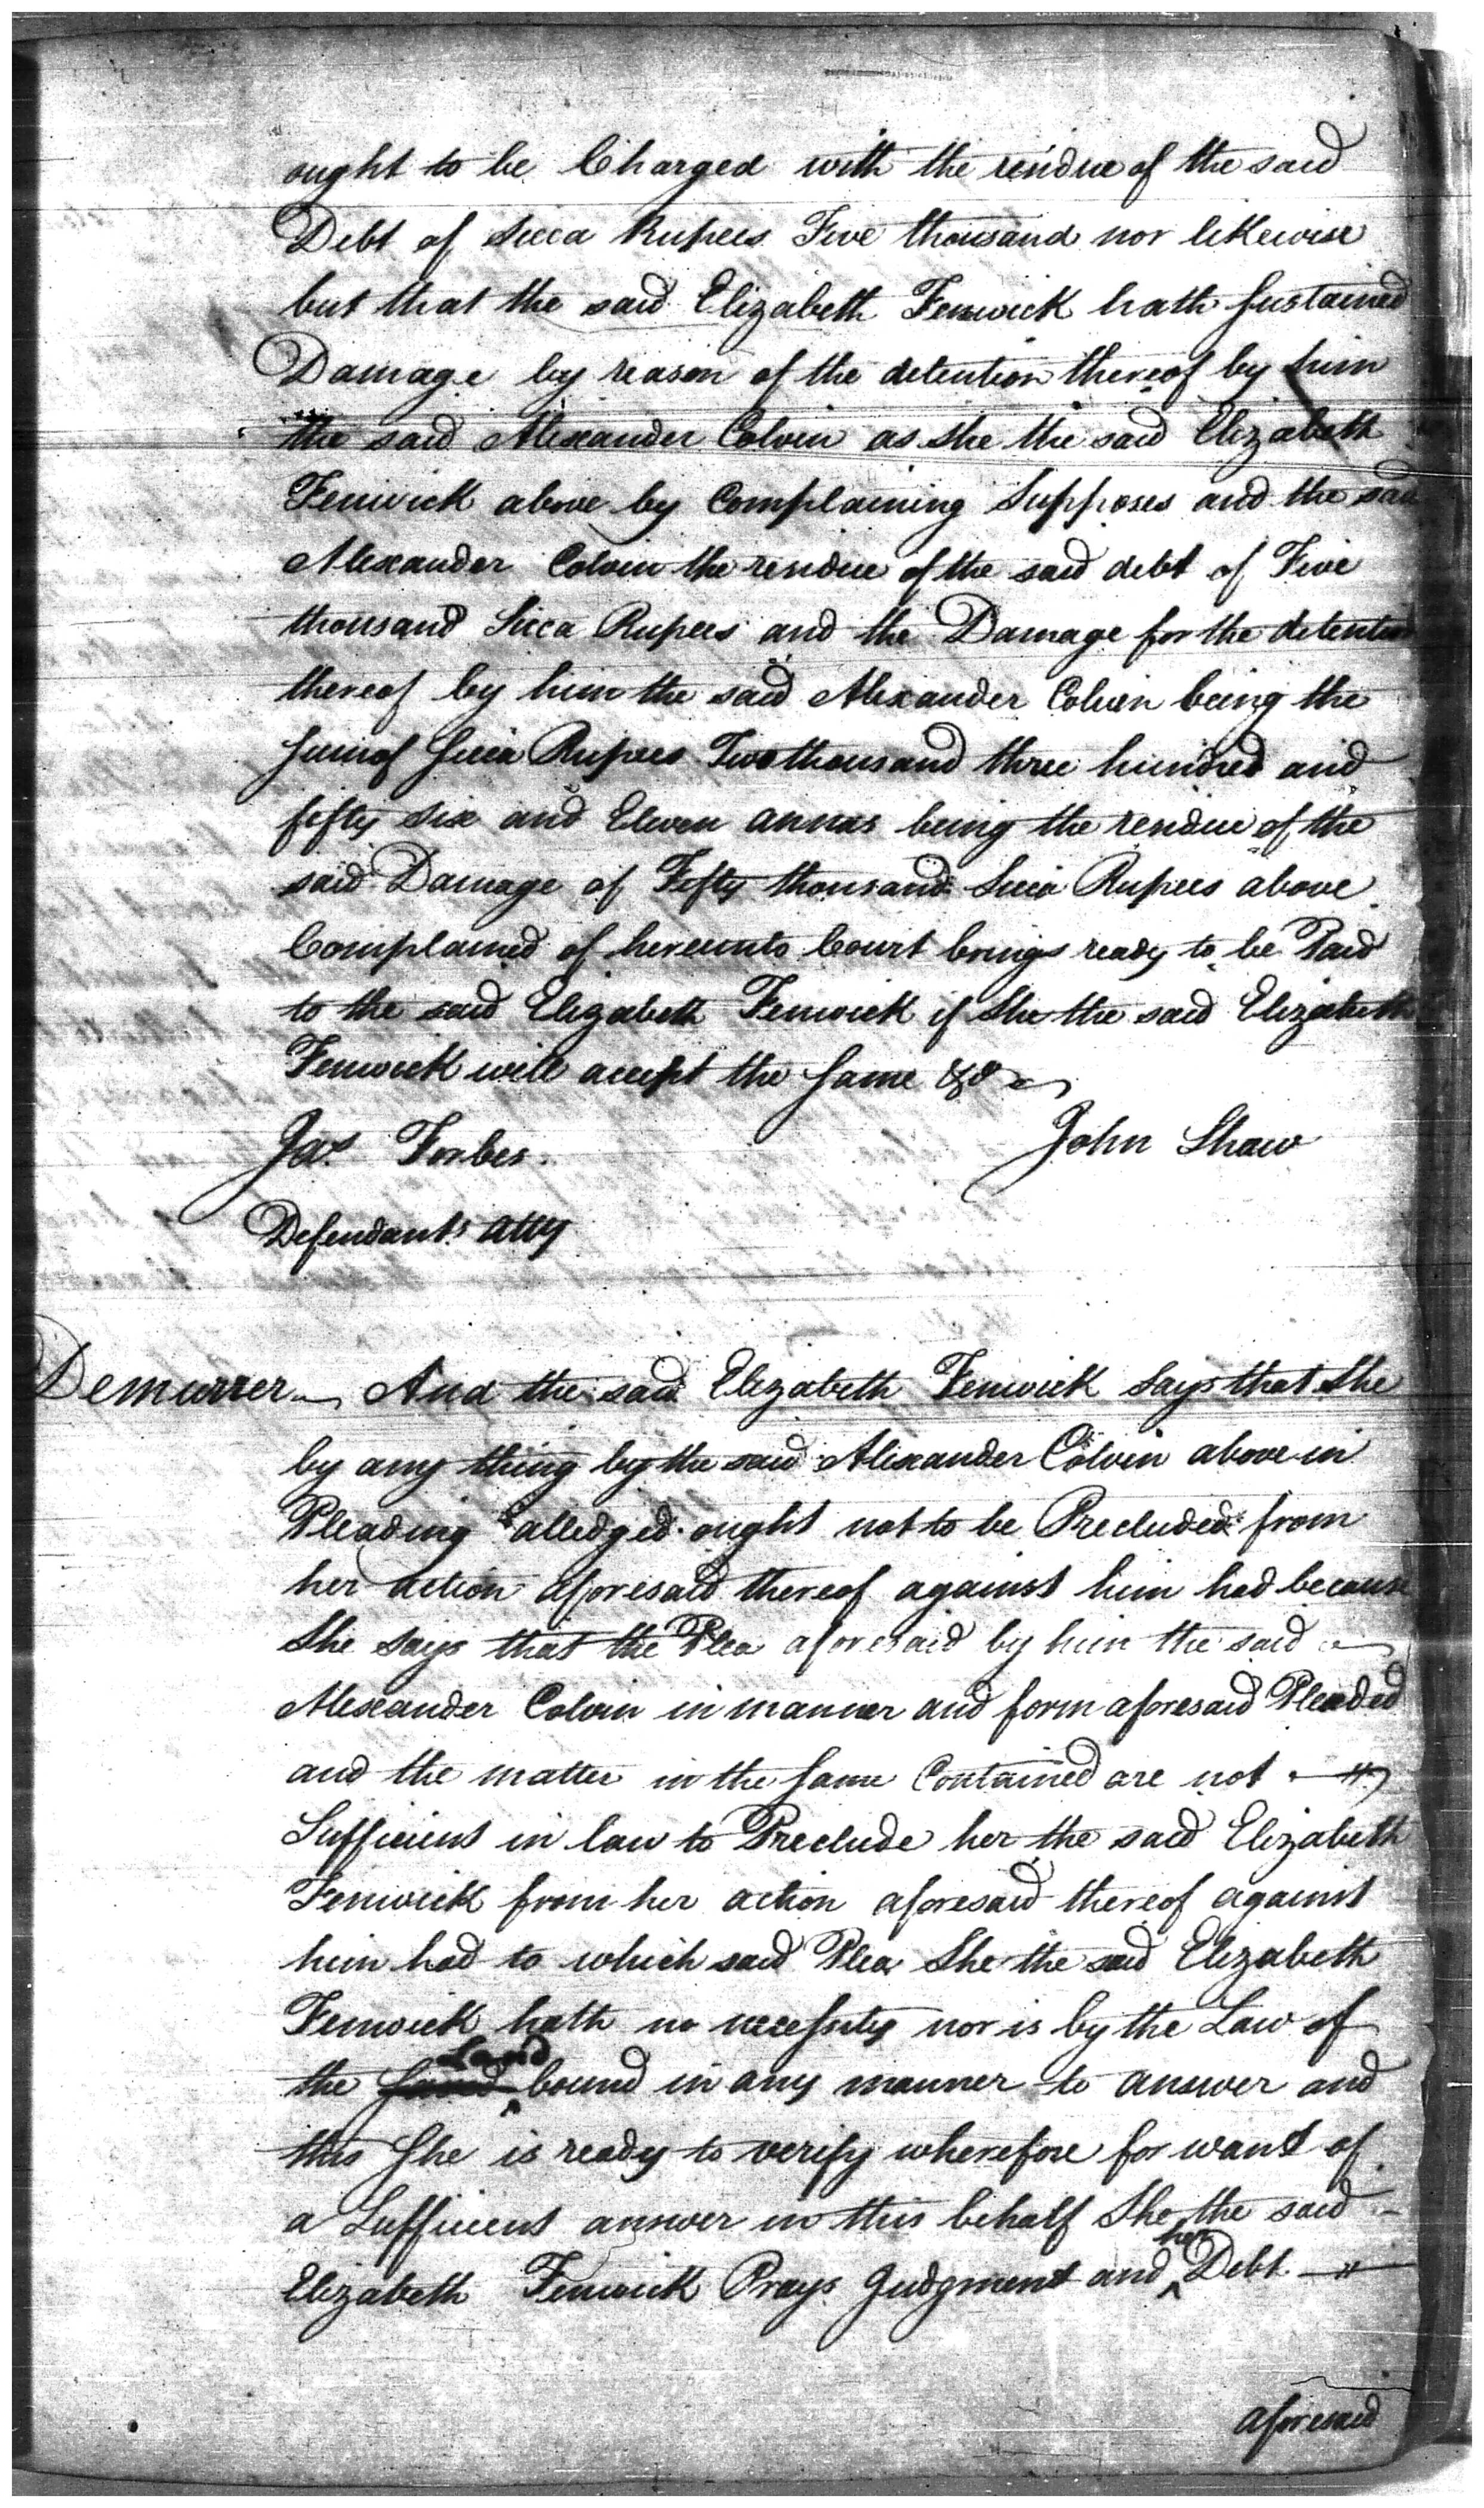 ought to be Charged with the residue of the said
Debt of Sicca Rupees Five thousand nor likewise
but that the said Elizabeth Fenwick hath Sustained
Damage by reason of the detention thereof by him
the said Alexander Colvin as she the said Elizabeth
Fenwick above by Complaining Supposes and the said
Alexander Colvin the residue of the said debt of Five
thousand Sicca Rupees and the Damage for the detention
thereof by him the said Alexander Colvin being the
Sum of Sicca Rupees Two thousand three hundred and
fifty six and Eleven annas being the residue of the
said Damage of Fifty thousand Sicca Rupees above
Complained of hereunto Court brings ready to be Paid
to the said Elizabeth Fenwick if She the said Elizabeth
Fenwick will accept the Same &c
Jas. Forbes. John Shaw
Defendants atty
Demurrer And the said Elizabeth Fenwick Says that She
by any thing by the said Alexander Colvin above in
Pleading alledged ought not to be Precluded from
her action aforesaid thereof against him had because
She Says that the Plea aforesaid by him the said
Alexander Colvin in manner and form aforesaid Pleaded
and the matter in the Same Contained are not
Sufficient in law to Preclude her the said Elizabeth
Fenwick from her action aforesaid thereof against
him had to which said Plea She the said Elizabeth
Fenwick hath no necessity nor is by the Law of
the Land bound in any manner to answer and
this She is ready to verify wherefore for want of
a Sufficient answer in this behalf She the said
Elizabeth Fenwick Prays Judgment and her Debt
aforesaid